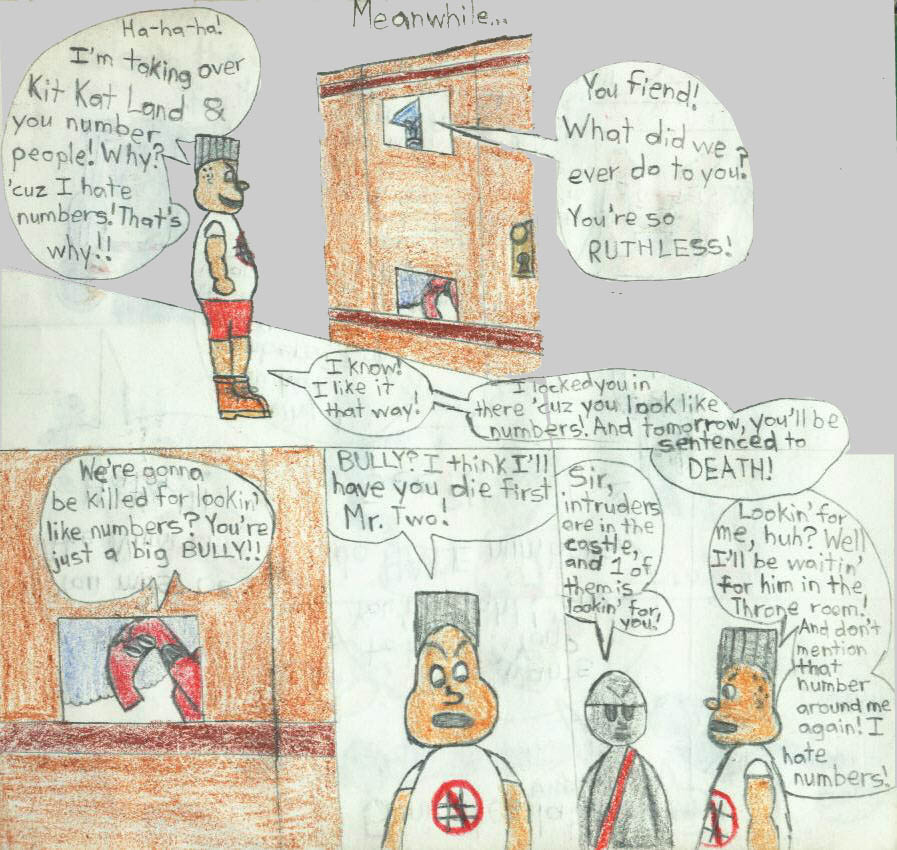 Meanwhile...
Ha-ha-ha!
I'm taking over
Kit Kat Land &
you number
people! Why?
'cuz I hate
numbers! That's
why!!
You fiend!
What did we
ever do to you?
You're so
RUTHLESS!
I know!
I like it
that way!
I locked you in
there 'cuz you look like
numbers! And tomorrow, you'll be
sentenced to
DEATH!
We're gonna
be killed for lookin'
like numbers? You're
just a big BULLY!!
BULLY? I think I'll
have you die first
Mr. Two!
Sir,
intruders
are in the
castle,
and 1 of
them is
lookin' for
you!
Lookin' for
me, huh? Well
I'll be waitin'
for him in the
Throne room!
And don't
mention
that
number
around me
again! I
hate
numbers!